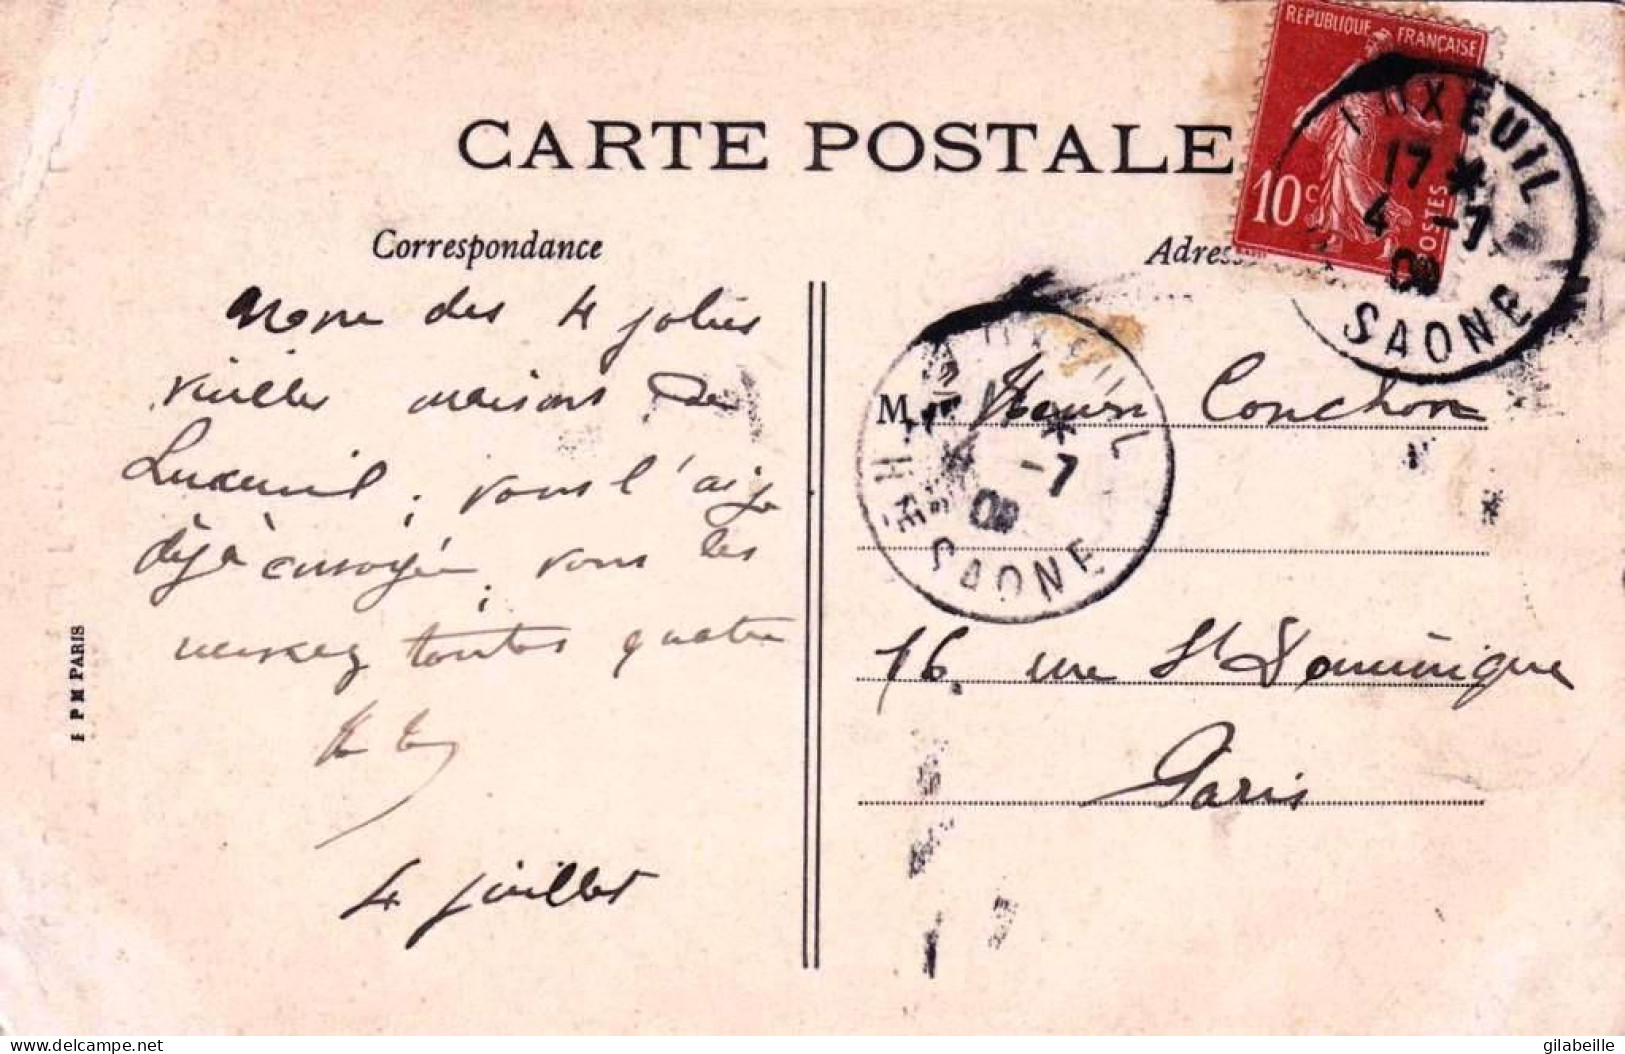 REPUBLIQUE FRANÇAISE
10c
POSTES
LUXEUIL
17 *
4 -7
09
SAONE
CARTE POSTALE
Correspondance
Adresse
des 4 jolies
vieilles maisons de
Luxeuil ; vous l'ai-je
déjà envoyée ; vous les
toutes quatre
4 juillet
LUXEUIL
*
-7
09
HTE SAONE
M. Henri Conchon
16 rue St Dominique
Paris
PM PARIS
delcampe.net
gilabeille